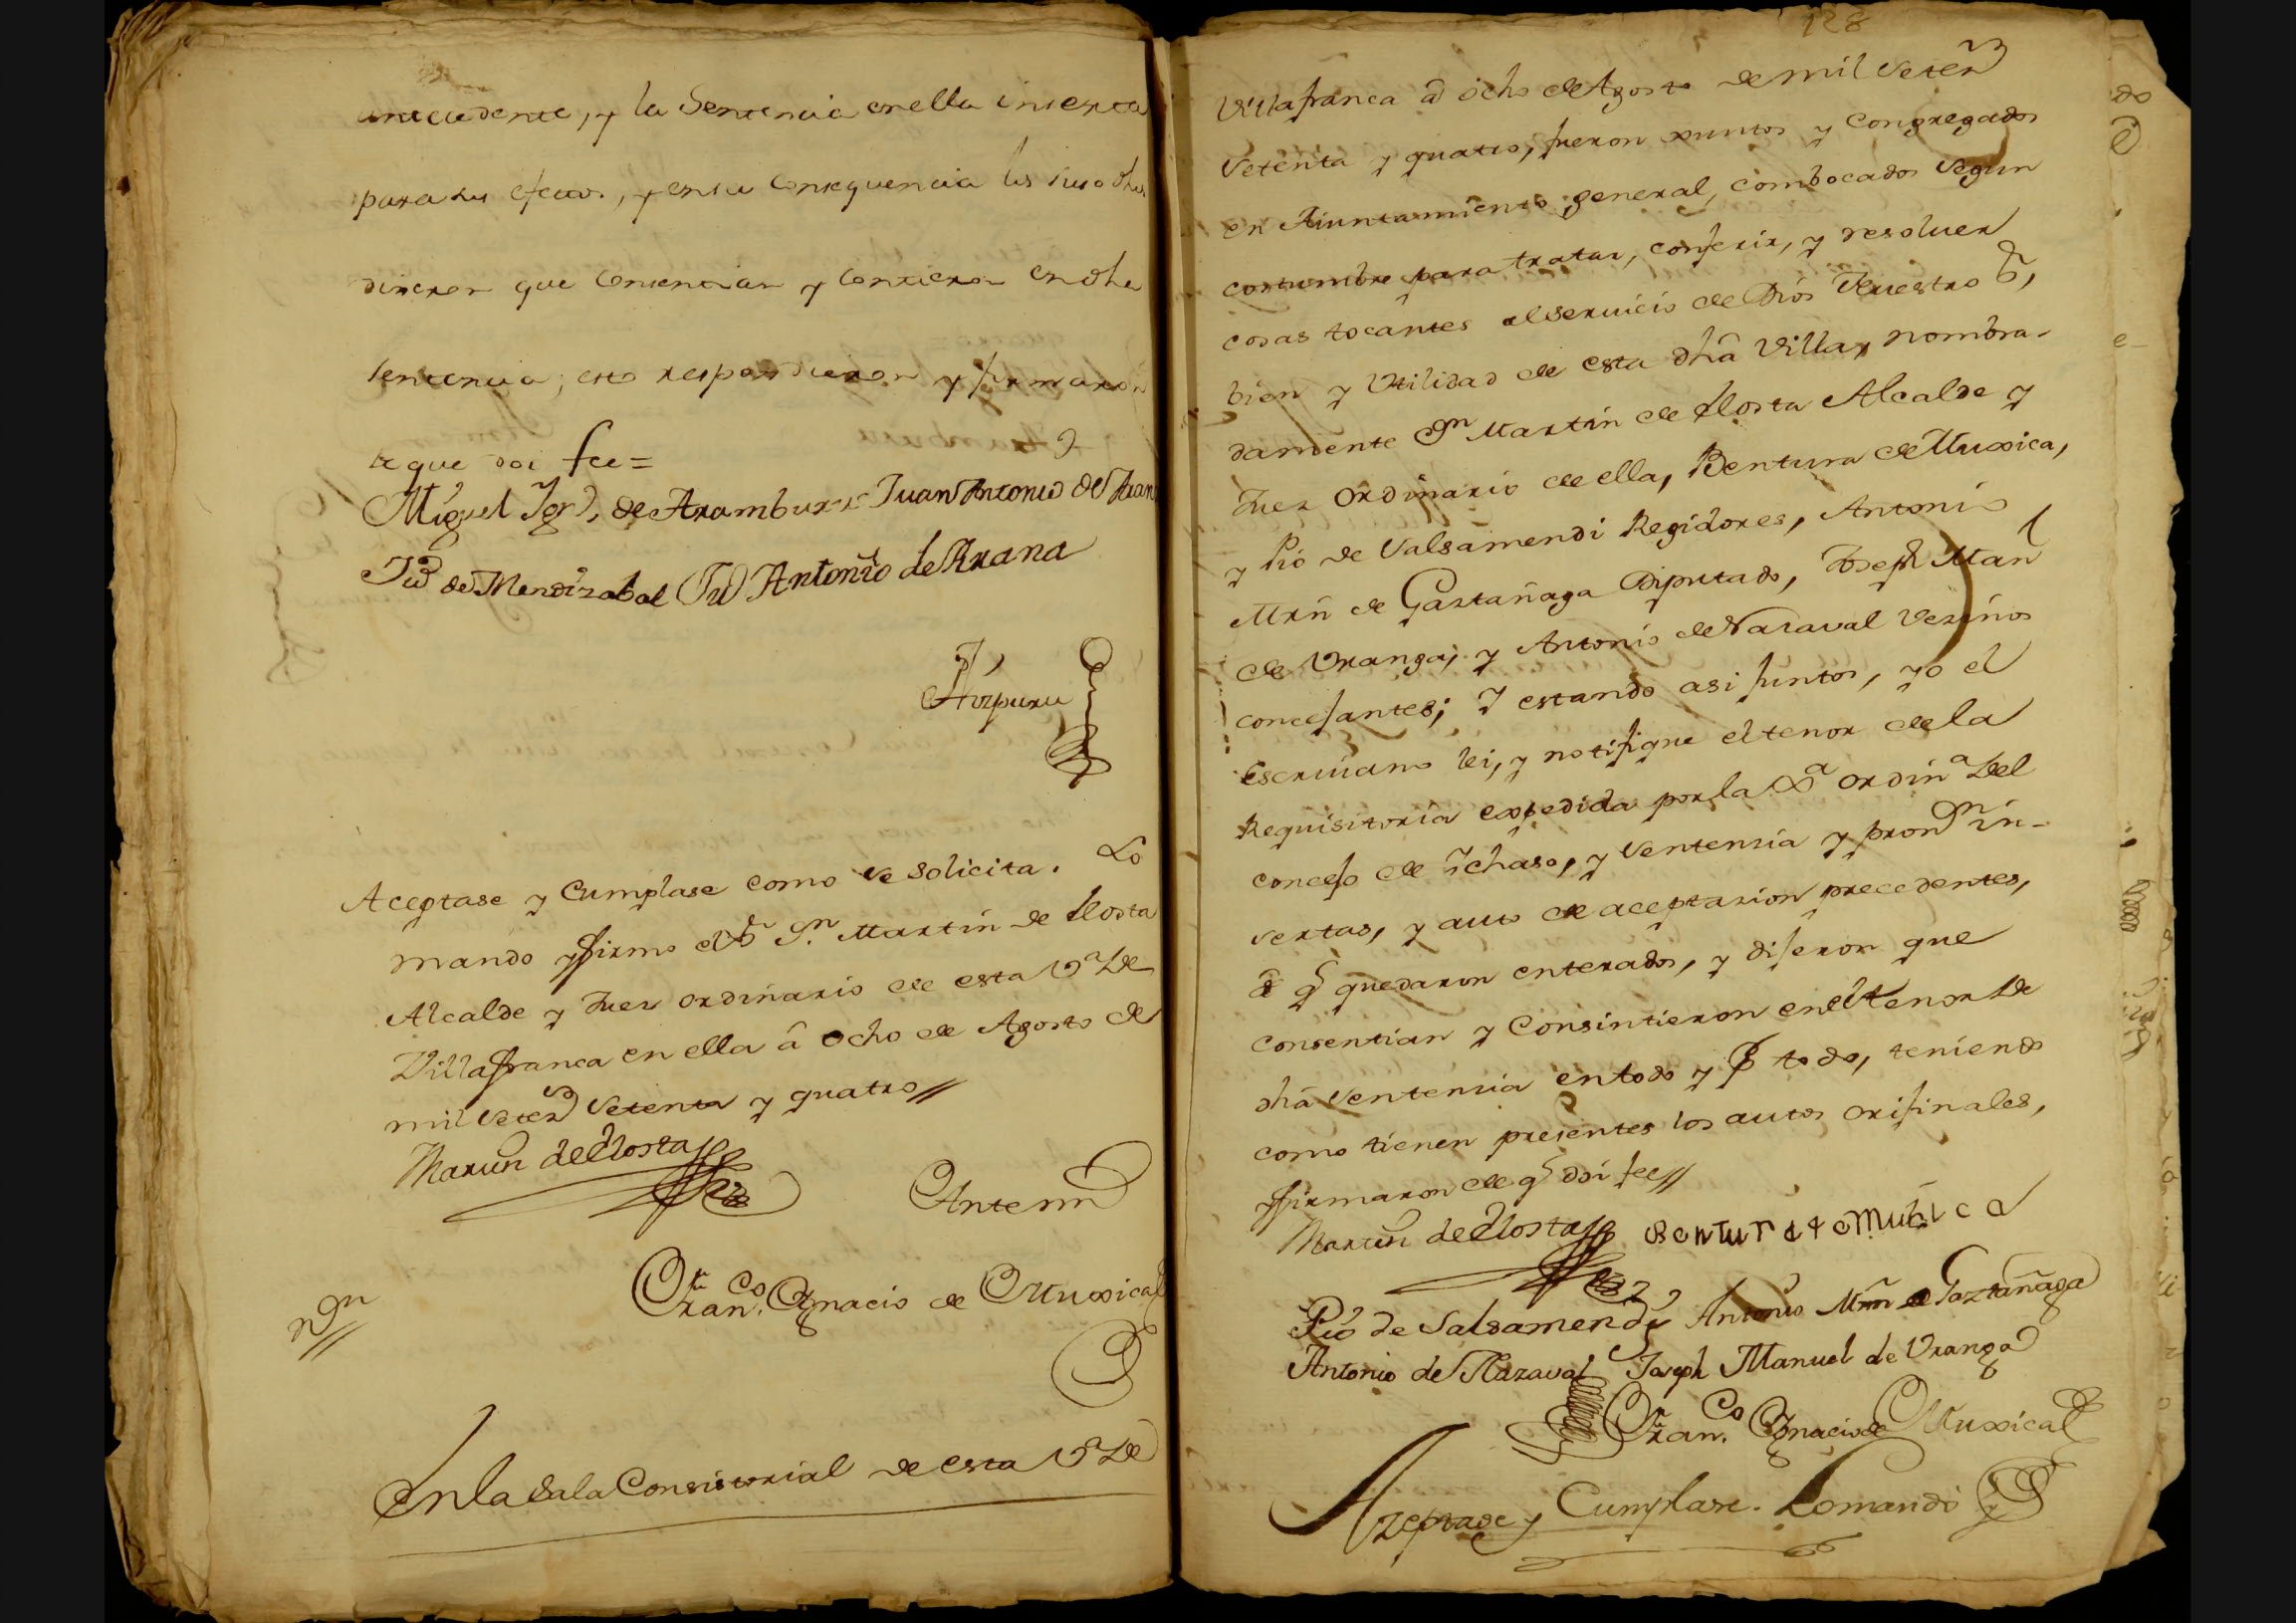 antecedente, y la Sentencia en ella inserta
para sus efectos, y en su consequencia los suso dhos
dixeron que consentian y consintieron en dha
sentencia, esto respondieron y firmaron
de que doi fee=
Miguel Ign.o de Aramburu Juan Antonio de Aran
Ju.o de Mendizabal Ju.o Antonio de Arana
Aizpuru
Aceptase y Cumplase como se solicita. Lo
mando y firmo el S.r D.n Martin de Elosta
Alcalde y Juez ordinario de esta V.a de
Villafranca en ella â ocho de Agosto de
mil setez.s setenta y quatro//
Martin de Elosta
Ante mi
Fran.co Ignacio de Muxica
N.on
En la Sala Consistorial de esta V.a de
128
Villafranca â ocho de Agosto de mil setez.s
setenta y quatro, fueron xuntos y congregados
en Aiuntamiento general, combocados segun
costumbre para tratar, conferir, y resoluer
cosas tocantes al seruicio de Dios Nuestro S.r,
bien y Utilidad de esta dhâ Villa, nombra-
damente D.n Martin de Elosta Alcalde y
Juez ordinario de ella, Bentura de Muxica,
y Pio de Valsamendi Regidores, Antonio
Mrñ de Gastañaga Diputado, Joseph Man.l
de Vranga, y Antonio de Nazaval vezinos
concejantes; Y estando asi juntos, yo el
Escriuano lei, y notifique el tenor de la
Requisitoria expedida por la J.a ordin.a del
concejo de Ychaso, y sentenzia y pron.on in-
sertas, y auto de aceptazion precedentes,
de q.e quedaron enterados, y dijeron que
consentian y consintieron en el tenor de
dhâ sentenzia en todo y P todo, teniendo
como tienen presentes los autos orijinales,
y firmaron de q.e doi fee//
Martin de Elosta Bentura de Muxica
Pio de Salsamendi Antonio Mrñ de Gaztañaga
Antonio de Nazaval Joseph Manuel de Vranga
Fran.co Ignacio de Muxica
Azeptase y Cumplase. Lo mando y